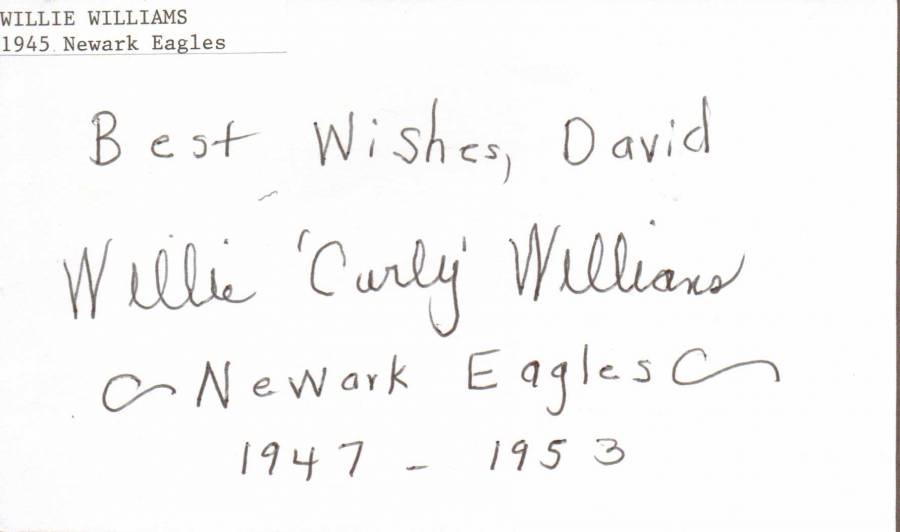 WILLIE WILLIAMS
1945 Newark Eagles
Best Wishes, David
Willie 'Curly' Williams
Newark Eagles
1947 - 1953